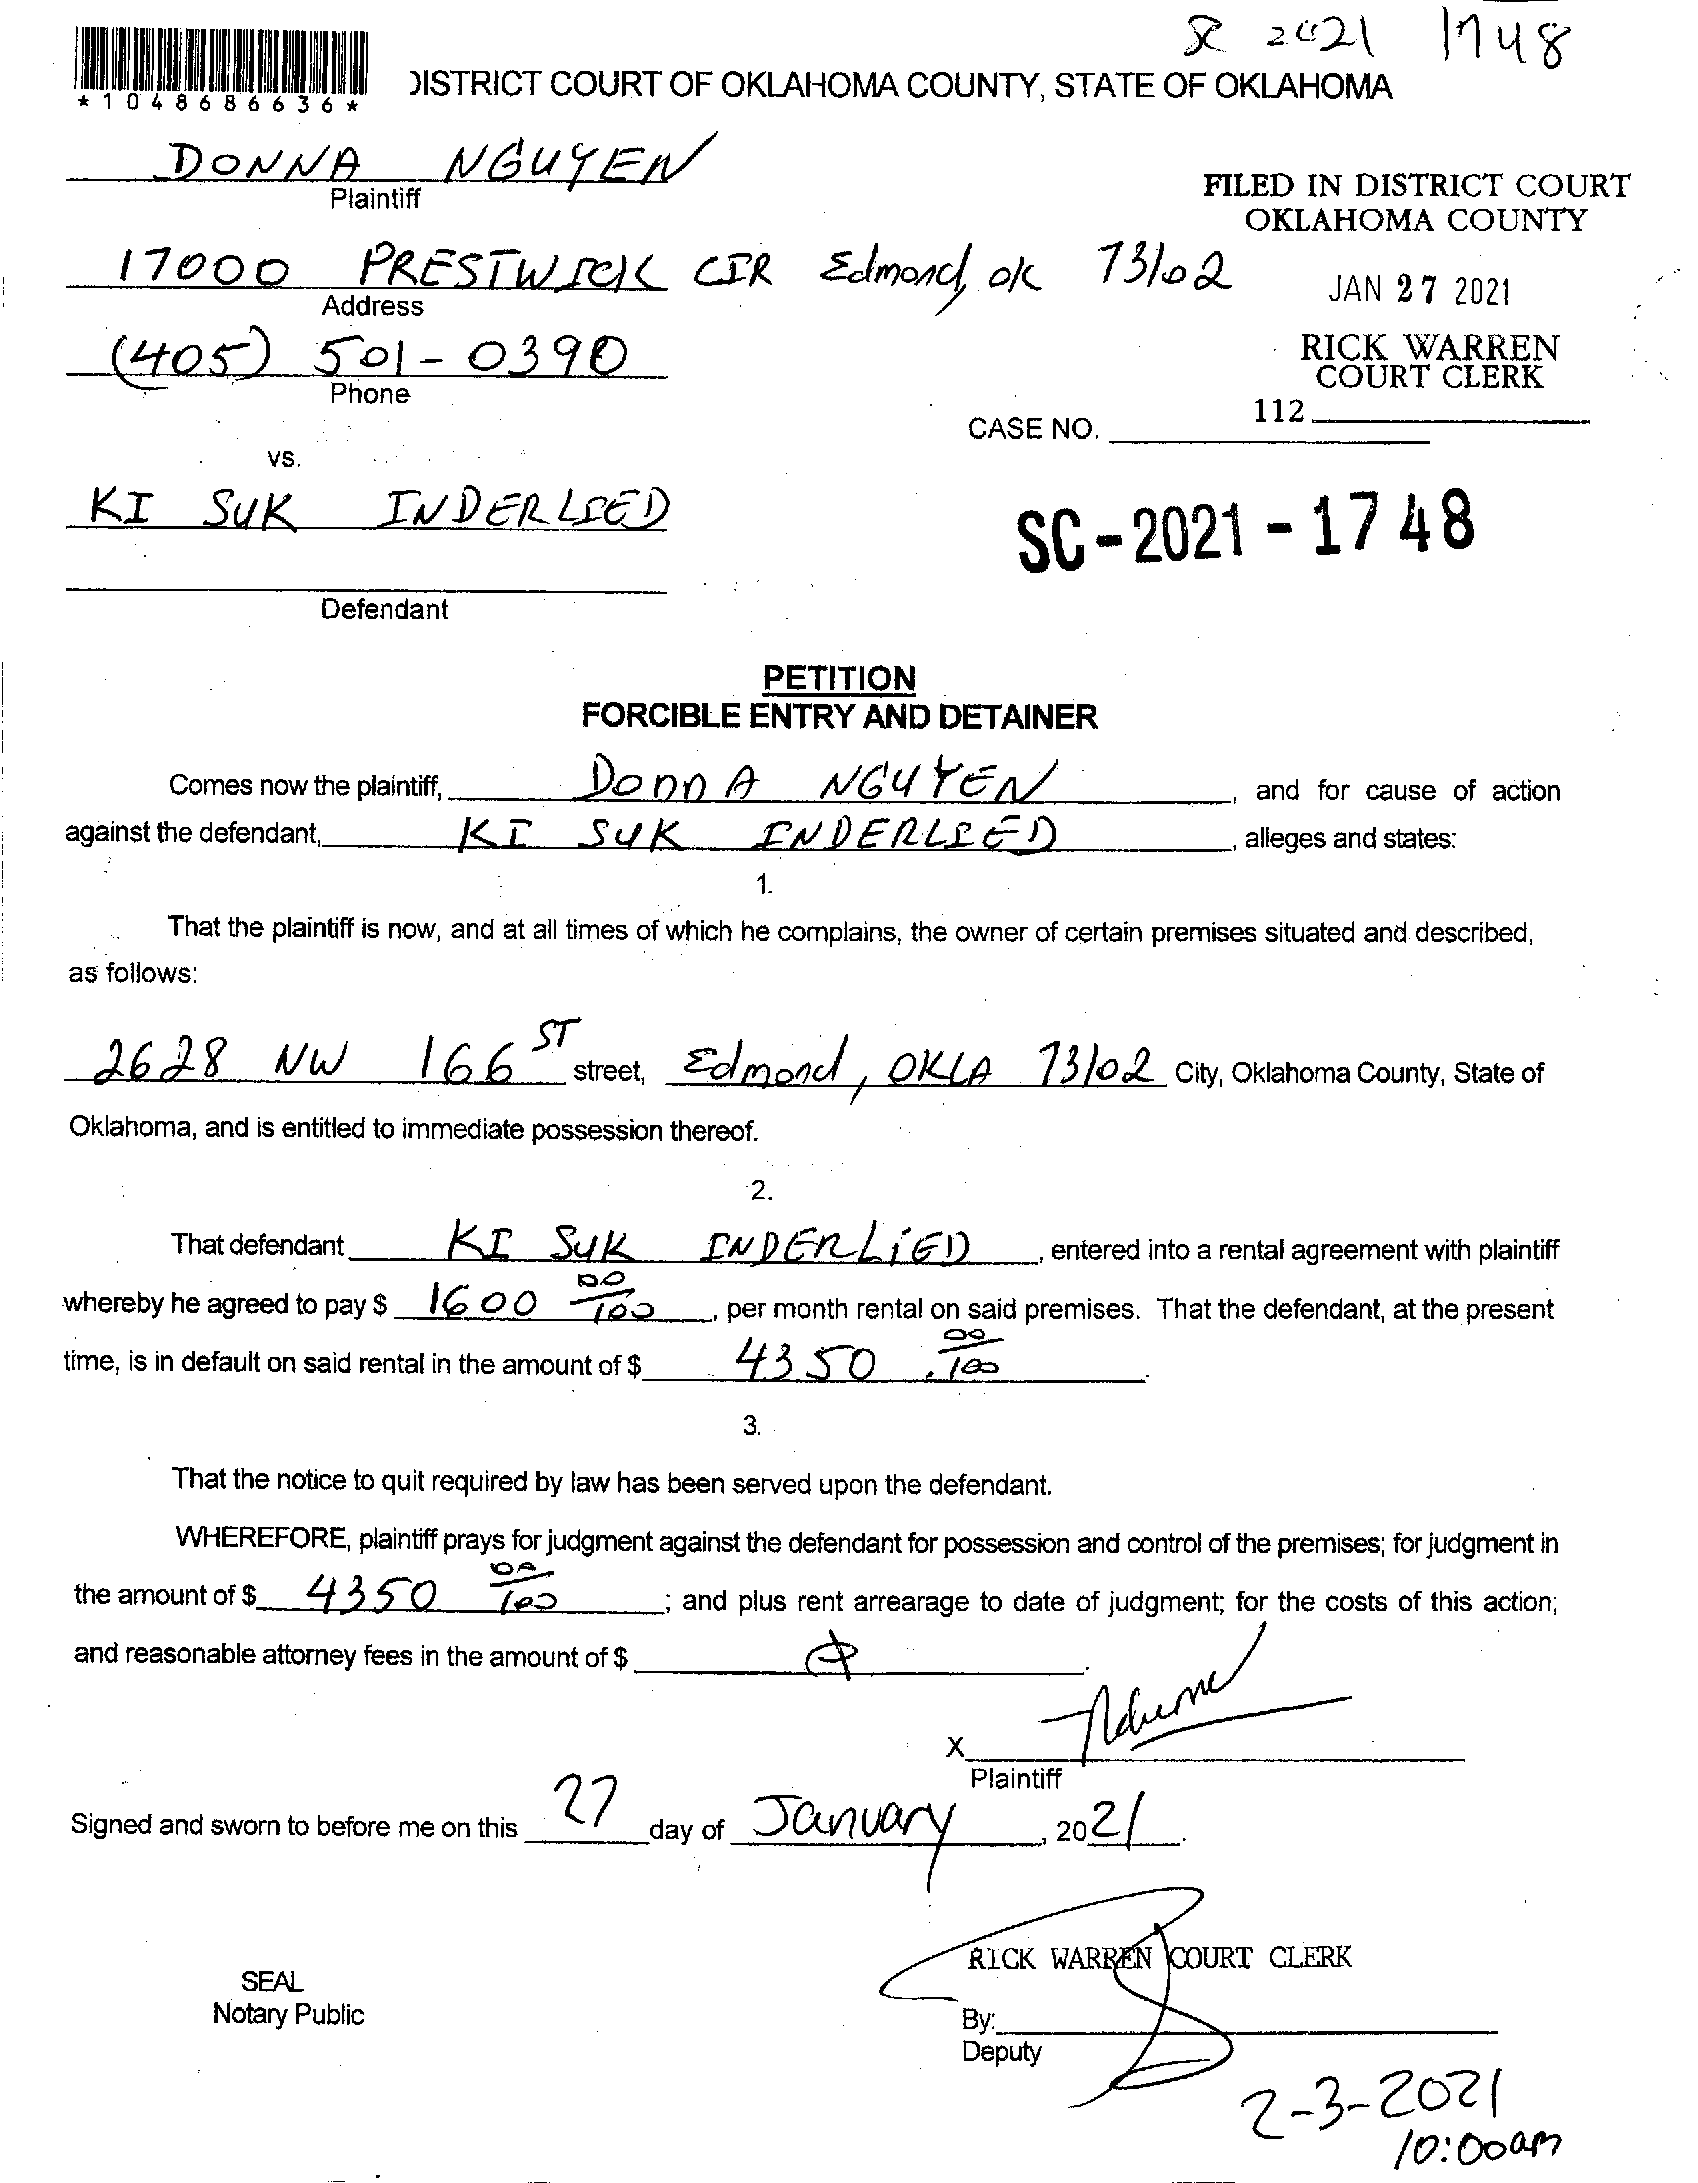 SC 2021 1748
*1048686636*
DISTRICT COURT OF OKLAHOMA COUNTY, STATE OF OKLAHOMA
DONNA NGUYEN
Plaintiff
FILED IN DISTRICT COURT
OKLAHOMA COUNTY
17000 PRESTWICK CIR Edmond, ok 73102
Address
JAN 27 2021
(405) 501-0390
Phone
RICK WARREN
COURT CLERK
112
CASE NO.
vs.
KI SUK INDERLIED
SC-2021-1748
Defendant
PETITION
FORCIBLE ENTRY AND DETAINER
Comes now the plaintiff, DonnA NGUYEN, and for cause of action
against the defendant, KI SUK INDERLIED, alleges and states:
1.
That the plaintiff is now, and at all times of which he complains, the owner of certain premises situated and described,
as follows:
2628 NW 166 ST street, Edmond, OKLA 73102 City, Oklahoma County, State of
Oklahoma, and is entitled to immediate possession thereof.
2.
That defendant KI SUK INDERLiED, entered into a rental agreement with plaintiff
whereby he agreed to pay $ 1600 00/100, per month rental on said premises. That the defendant, at the present
time, is in default on said rental in the amount of $ 4350 . 00/100.
3.
That the notice to quit required by law has been served upon the defendant.
WHEREFORE, plaintiff prays for judgment against the defendant for possession and control of the premises; for judgment in
the amount of $ 4350 00/100; and plus rent arrearage to date of judgment; for the costs of this action;
and reasonable attorney fees in the amount of $ ϕ.
X
Plaintiff
Signed and sworn to before me on this 27 day of January, 2021.
RICK WARREN COURT CLERK
SEAL
Notary Public
By:
Deputy
2-3-2021
10:00am